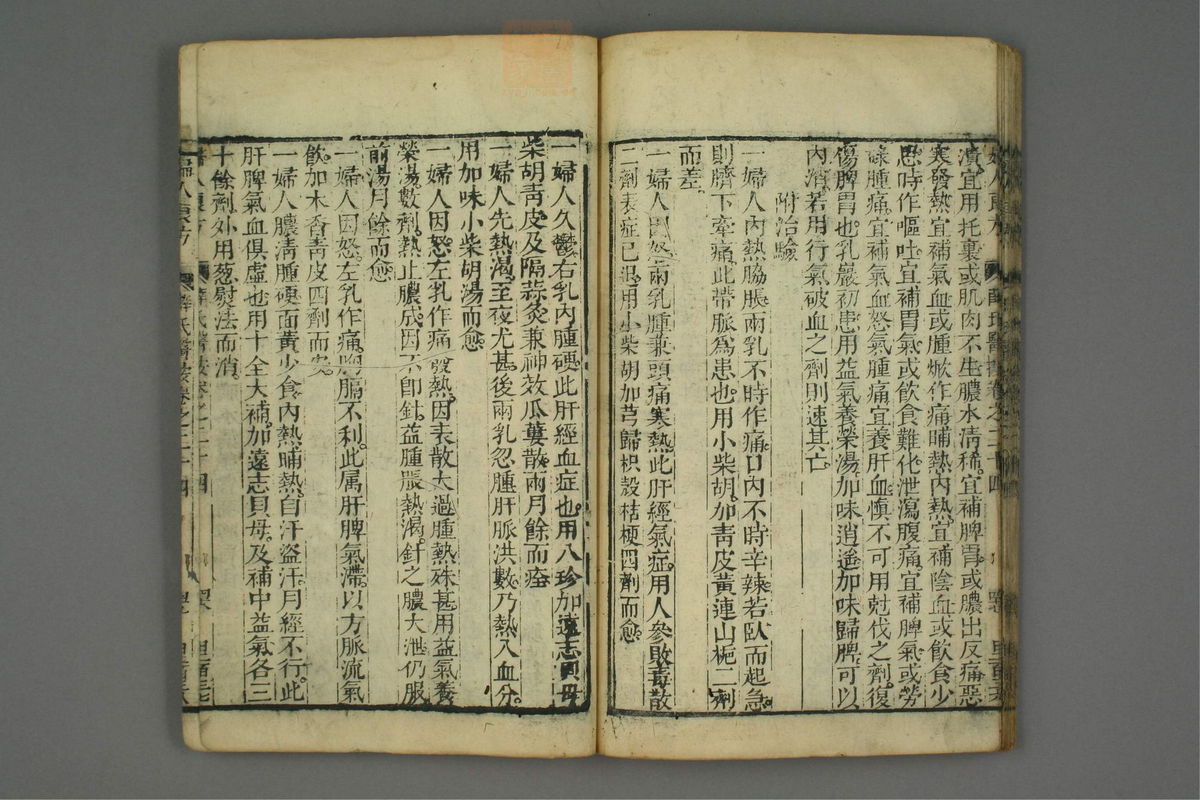 潰宜用托裏或肌肉不生膿水清稀宜補脾胃或膿出反痛惡
寒發熱宜補氣血或腫焮作痛晡熱內熱宜補陰血或飲食少
思時作嘔吐宜補胃氣或飲食難化泄瀉腹痛宜補脾氣或勞
碌腫痛宜補氣血怒氣腫痛宜養肝血慎不可用尅伐之劑復
傷脾胃也乳巖初患用益氣養榮湯加味逍遙加味歸脾可以
內消若用行氣破血之劑則速其亡
附治驗
一婦人內熱脇脹兩乳不時作痛口內不時辛辣若臥而起急
則臍下牽痛此帶脈為患也用小柴胡加青皮黃連山梔二劑
而差
一婦人因怒兩乳腫兼頭痛寒熱此肝經氣症用人參敗毒散
二劑表症已退用小柴胡加芎歸枳殼桔梗四劑而愈
一婦人久鬱右乳內腫硬此肝經血症也用八珍加遠志貝母
柴胡青皮及隔蒜灸兼神效瓜蔞散兩月餘而痊
一婦人先熱渴至夜尤甚後兩乳忽腫肝脈洪數乃熱入血分
用加味小柴胡湯而愈
一婦人因怒左乳作痛發熱因表散太過腫熱殊甚用益氣養
榮湯數劑熱止膿成因不即針益腫脹熱渴針之膿大泄仍服
前湯月餘而愈
一婦人因怒左乳作痛胸膈不利此属肝脾氣滯以方脈流氣
飲加木香青皮四劑而安
一婦人膿清腫硬面黃少食內熱晡熱自汗盜汗月經不行此
肝脾氣血俱虛也用十全大補加遠志貝母及補中益氣各三
十餘劑外用葱熨法而消
婦人良方 薛氏醫案卷之二十四